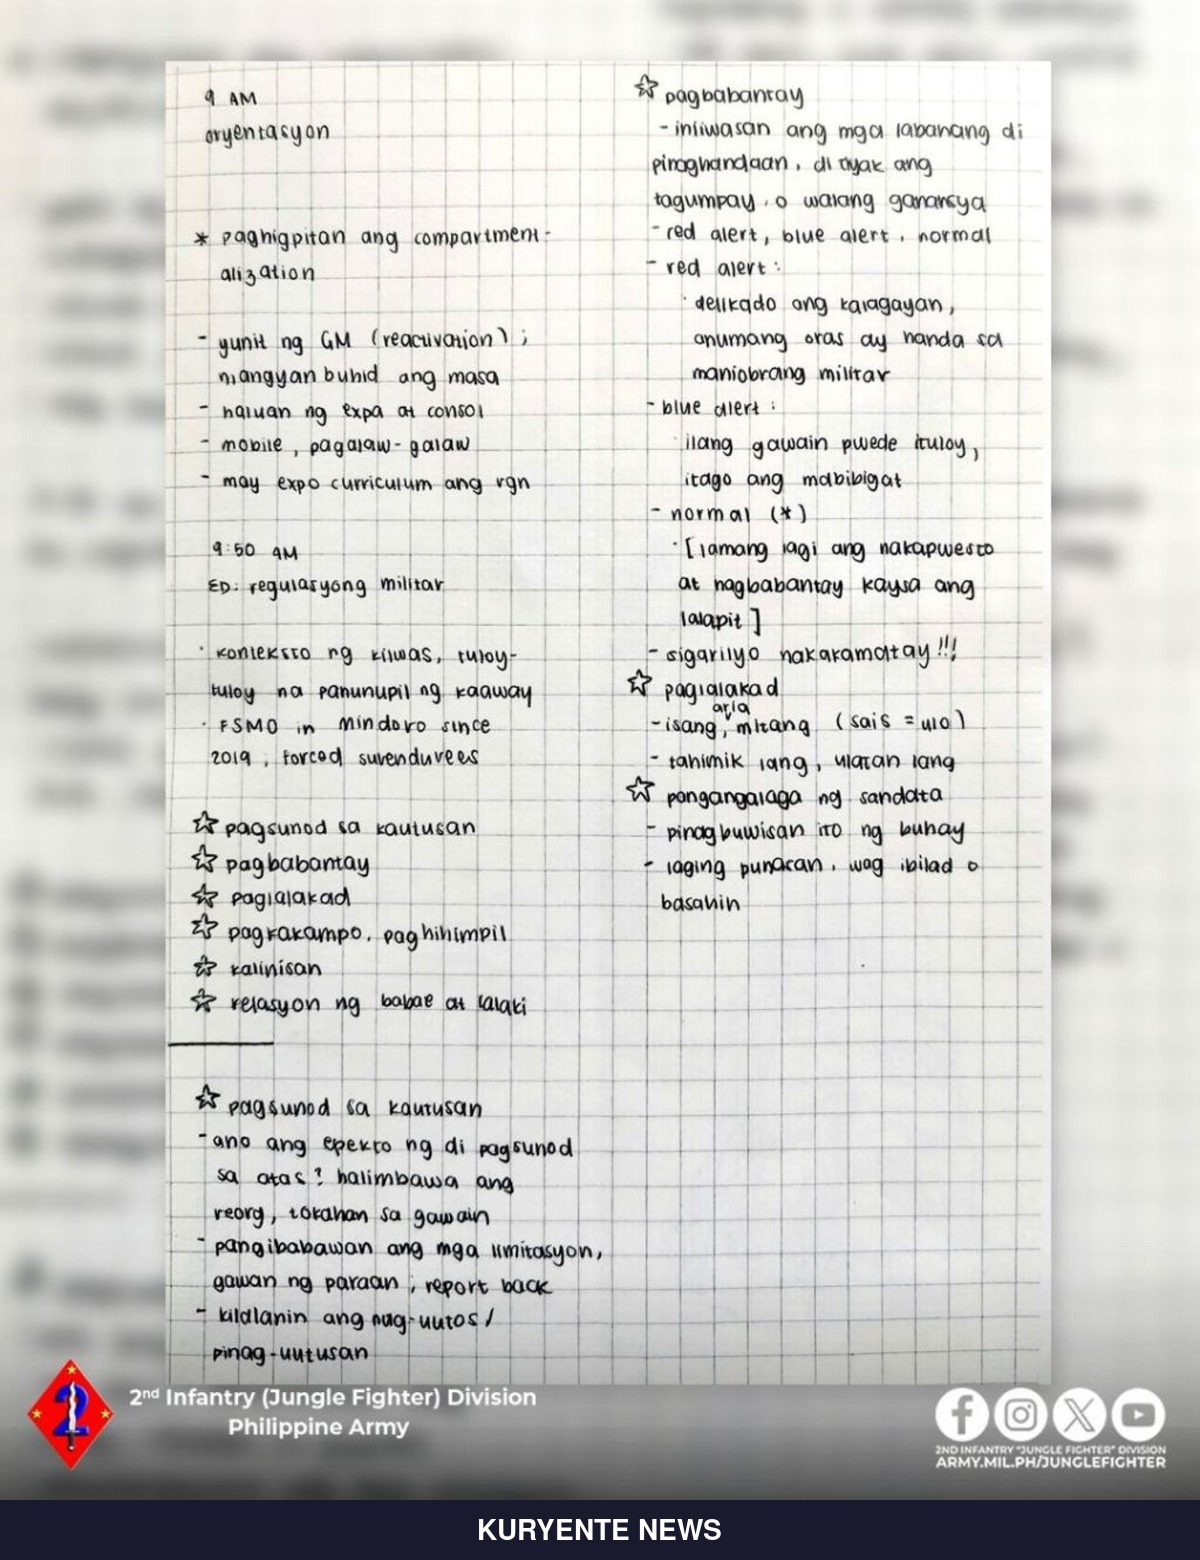 9 AM
oryentasyon
* paghigpitan ang compartment-
alization
- yunit ng GM (reactivation);
mangyan buhid ang masa
- haluan ng expa at consol
- mobile, pagalaw-galaw
- may expo curriculum ang rgn
9:50 AM
ED: regulasyong militar
· konteksto ng kilwas, tuloy-
tuloy na panunupil ng kaaway
· FSMO in Mindoro since
2019; forced surendurees
☆ pagsunod sa kautusan
☆ pagbabantay
☆ paglalakad
☆ pagkakampo, paghihimpil
☆ kalinisan
☆ relasyon ng babae at lalaki
☆ pagsunod sa kautusan
- ano ang epekto ng di pagsunod
sa atas? halimbawa ang
reorg, tokahan sa gawain
- pangibabawan ang mga limitasyon,
gawan ng paraan; report back
- kilalanin ang nag-uutos/
pinag-uutusan
☆ pagbabantay
- iniiwasan ang mga labanang di
pinaghandaan, di tiyak ang
tagumpay, o walang ganansya
- red alert, blue alert, normal
- red alert:
· delikado ang kalagayan,
anumang oras ay handa sa
maniobrang militar
- blue alert:
· ilang gawain pwede ituloy,
itago ang mabibigat
- normal (*)
· [lamang lagi ang nakapwesto
at nagbabantay kaysa ang
lalapit]
- sigarilyo nakakamatay!!!
☆ paglalakad
- isang arla, mitang (sais = ulo)
- tahimik lang, ulatan lang
☆ pangangalaga ng sandata
- pinagbuwisan ito ng buhay
- laging punasan, wag ibilad o
basahin
2nd Infantry (Jungle Fighter) Division
Philippine Army
2ND INFANTRY "JUNGLE FIGHTER" DIVISION
ARMY.MIL.PH/JUNGLEFIGHTER
KURYENTE NEWS